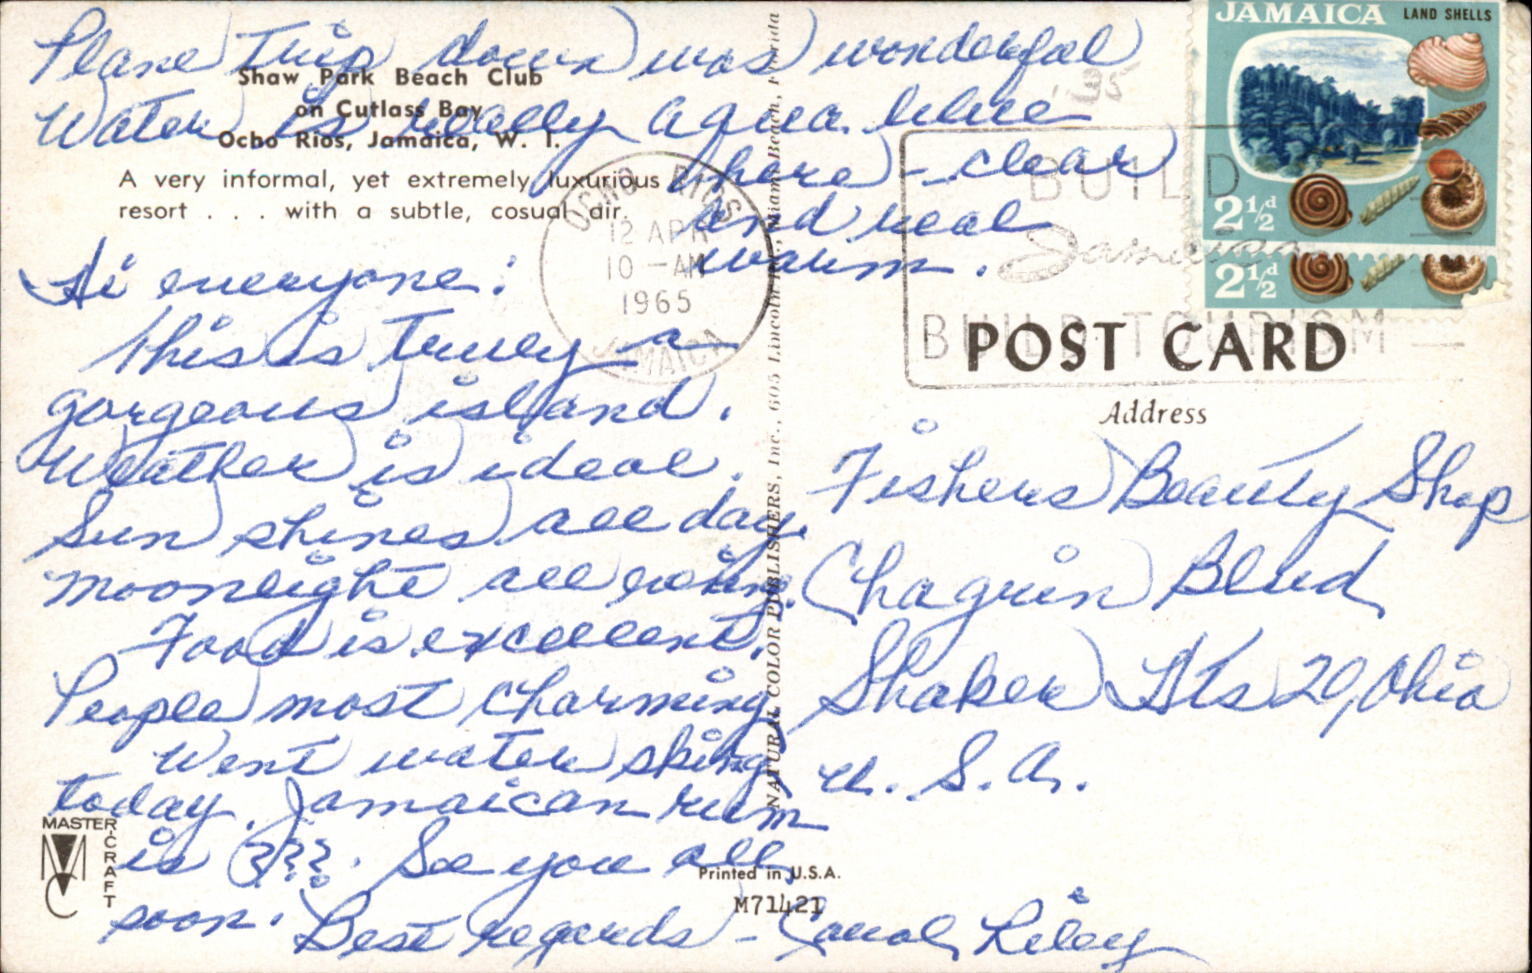 Plane trip down was wonderful
Water is really aqua blue
here - clear
and real
warm.
Shaw Park Beach Club
on Cutlass Bay
Ocho Rios, Jamaica, W. I.
A very informal, yet extremely luxurious
resort . . . with a subtle, casual air.
Hi everyone:
This is truly a
gorgeous island.
Weather is ideal.
Sun shines all day,
moonlight all
Food is excellent.
People most charming
Went water skiing
today. Jamaican rum
is ???. See you all
soon. Best regards - Carol Riley
MASTER
CRAFT
Printed in U.S.A.
M71421
NATURAL COLOR PUBLISHERS, Inc., 605 Lincoln Rd., Miami Beach, Florida
OCHO RIOS
12 APR
10 - AM
1965
JAMAICA
BUILD
Jamaica
BUILD TOURISM
JAMAICA LAND SHELLS
2½d
2½d
POST CARD
Address
Fishers Beauty Shop
Chagrin Blvd
Shaker Hts 20, Ohio
U. S. A.